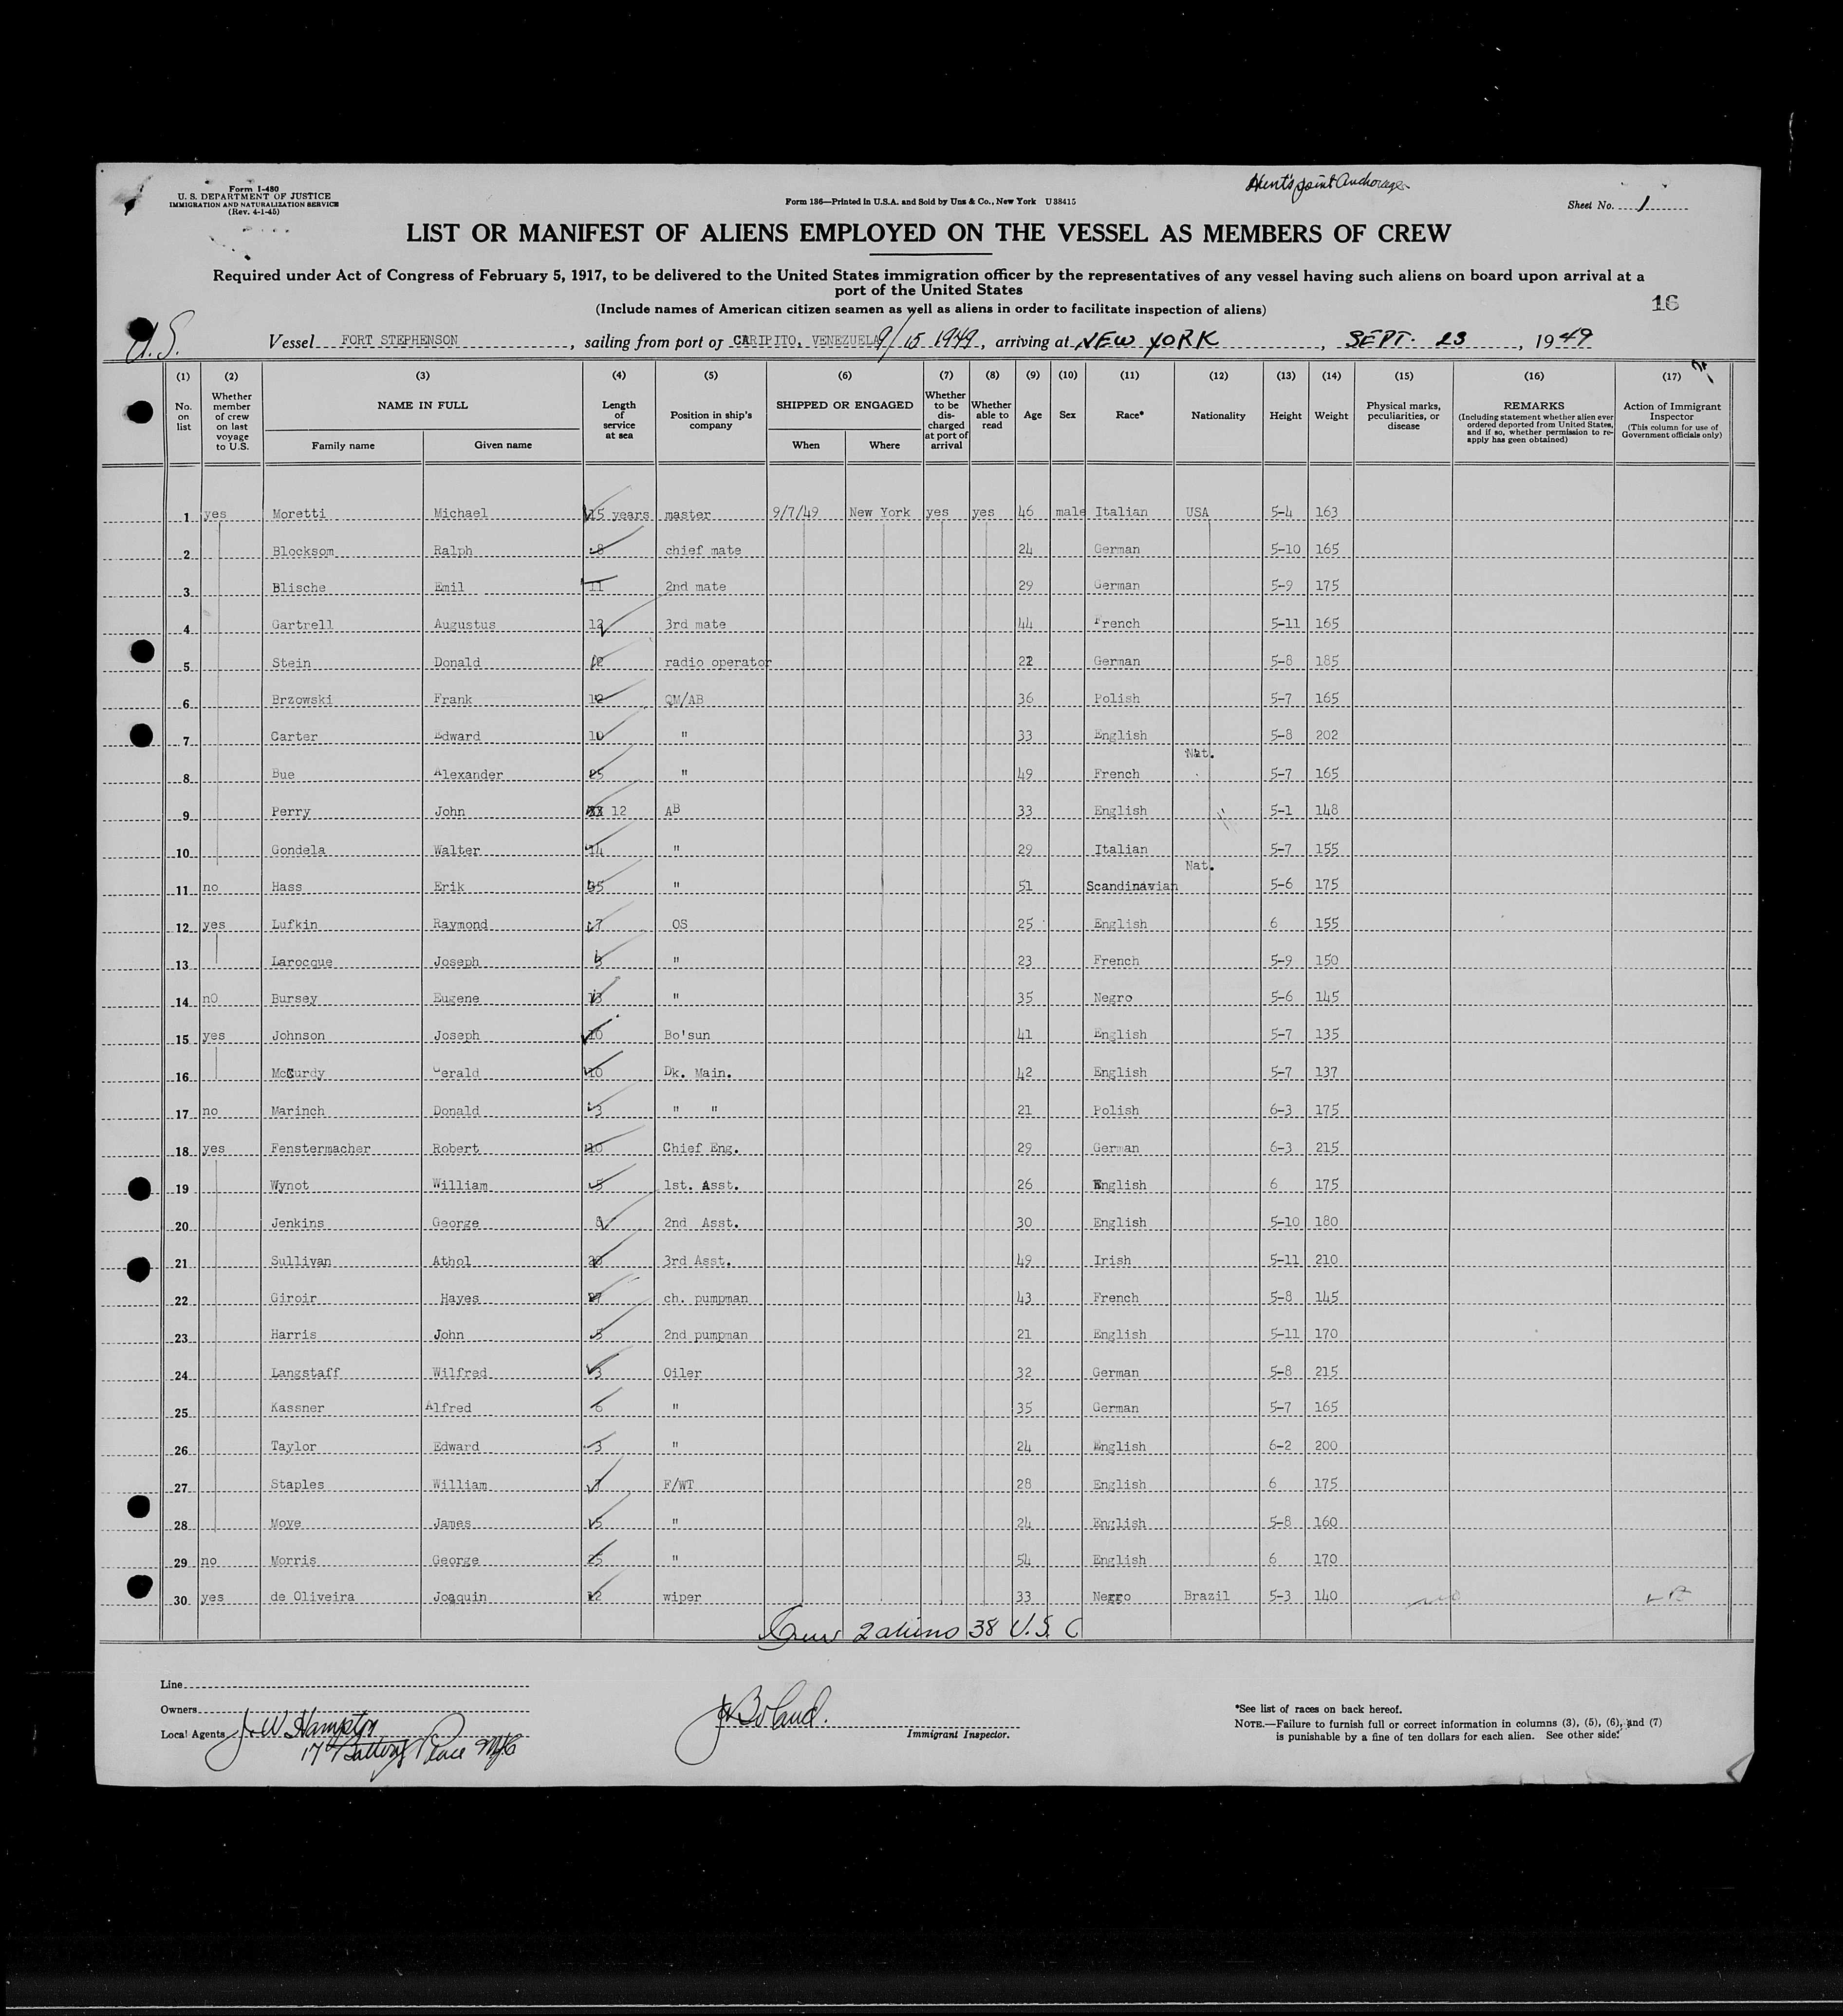 Form I-480
U. S. DEPARTMENT OF JUSTICE
IMMIGRATION AND NATURALIZATION SERVICE
(Rev. 4-1-45)
Form 136—Printed in U.S.A. and Sold by Unz & Co., New York U38415
Hunt's Point Anchorage
Sheet No. 1
LIST OR MANIFEST OF ALIENS EMPLOYED ON THE VESSEL AS MEMBERS OF CREW
Required under Act of Congress of February 5, 1917, to be delivered to the United States immigration officer by the representatives of any vessel having such aliens on board upon arrival at a
port of the United States
(Include names of American citizen seamen as well as aliens in order to facilitate inspection of aliens)
16
U.S.
Vessel FORT STEPHENSON, sailing from port of CARIPITO, VENEZUELA 9/15 1949, arriving at NEW YORK, SEPT. 23, 1949
(1) (2) (3) (4) (5) (6) (7) (8) (9) (10) (11) (12) (13) (14) (15) (16) (17)
No. on list
Whether member of crew on last voyage to U.S.
NAME IN FULL
Family name
Given name
Length of service at sea
Position in ship's company
SHIPPED OR ENGAGED
When
Where
Whether to be discharged at port of arrival
Whether able to read
Age
Sex
Race*
Nationality
Height
Weight
Physical marks, peculiarities, or disease
REMARKS
(Including statement whether alien ever ordered deported from United States, and if so, whether permission to re-apply has geen obtained)
Action of Immigrant Inspector
(This column for use of Government officials only)
1 yes Moretti Michael 15 years master 9/7/49 New York yes yes 46 male Italian USA 5-4 163
2 Blocksom Ralph 8 chief mate 24 German 5-10 165
3 Blische Emil 11 2nd mate 29 German 5-9 175
4 Gartrell Augustus 12 3rd mate 44 French 5-11 165
5 Stein Donald radio operator 22 German 5-8 185
6 Brzowski Frank 12 QM/AB 36 Polish 5-7 165
7 Carter Edward 10 " 33 English 5-8 202
8 Bue Alexander 25 " 49 French Nat. 5-7 165
9 Perry John 12 AB 33 English 5-1 148
10 Gondela Walter 14 " 29 Italian 5-7 155
11 no Hass Erik 35 " 51 Scandinavian Nat. 5-6 175
12 yes Lufkin Raymond 7 OS 25 English 6 155
13 Larocque Joseph " 23 French 5-9 150
14 no Bursey Eugene 13 " 35 Negro 5-6 145
15 yes Johnson Joseph 10 Bo'sun 41 English 5-7 135
16 McCurdy Gerald 10 Dk. Main. 42 English 5-7 137
17 no Marinch Donald 3 " " 21 Polish 6-3 175
18 yes Fenstermacher Robert 10 Chief Eng. 29 German 6-3 215
19 Wynot William 5 1st. Asst. 26 English 6 175
20 Jenkins George 2nd Asst. 30 English 5-10 180
21 Sullivan Athol 20 3rd Asst. 49 Irish 5-11 210
22 Giroir Hayes 27 ch. pumpman 43 French 5-8 145
23 Harris John 5 2nd pumpman 21 English 5-11 170
24 Langstaff Wilfred 3 Oiler 32 German 5-8 215
25 Kassner Alfred 6 " 35 German 5-7 165
26 Taylor Edward 3 " 24 English 6-2 200
27 Staples William 7 F/WT 28 English 6 175
28 Moye James 5 " 24 English 5-8 160
29 no Morris George 25 " 54 English 6 170
30 yes de Oliveira Joaquin 12 wiper 33 Negro Brazil 5-3 140
Crew 2 aliens 38 U.S.C
Line
Owners
Local Agents J. W Hampton
17 Battery Place NYC
J Boland.
Immigrant Inspector.
*See list of races on back hereof.
NOTE.—Failure to furnish full or correct information in columns (3), (5), (6), and (7)
is punishable by a fine of ten dollars for each alien. See other side.